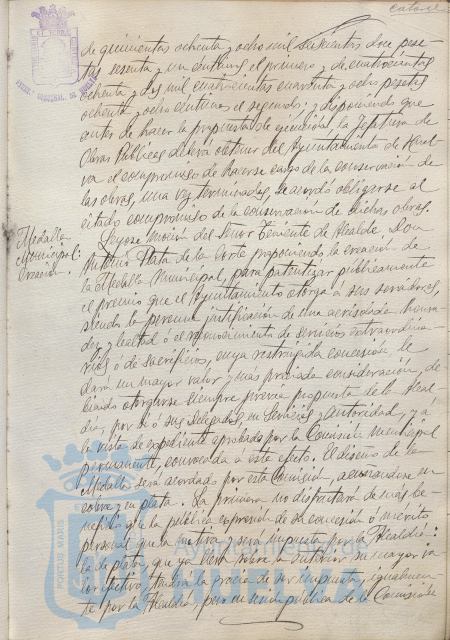 Catorce
de quinientas ochenta y ocho mil seiscientas doce pese-
tas sesenta y un céntimos el primero y de cuatrocientas
ochenta y dos mil cuatrocientas cuarenta y ocho pesetas
ochenta y ocho céntimos el segundo; y disponiendo que
antes de hacer la propuesta de ejecución, la Jefatura de
Obras Públicas deberá obtener del Ayuntamiento de Huel-
va el compromiso de hacerse cargo de la conservación de
las obras, una vez terminadas, se acordó obligarse al
citado compromiso de la conservación de dichas obras.
Medalla
Municipal:
Creación.
Leyose moción del Señor Teniente de Alcalde Don
Antonio Plata de la Corte proponiendo la creación de
la Medalla Municipal, para patentizar públicamente
el premio que el Ayuntamiento otorga a sus servidores,
siendo la perenne justificación de una acrisolada honra-
dez y lealtad ó el reconocimiento de servicios extraordina-
rios ó de sacrificios, cuya restringida concesión le
dará un mayor valor y más preciada consideración, de-
biendo otorgarse siempre previa propuesta de la Alcal-
día, por sí ó sus Delegados en Servicios y Autoridad, y á
la vista de expediente aprobado por la Comisión municipal
permanente, convocada a este efecto. El diseño de la
Medalla será acordado por esta Comisión, acuñándose en
cobre y en plata. La primera no disfrutará de más be-
neficio que la pública expresión de su concesión ó mérito
personal que la motiva y será impuesta por la Alcaldía:
la de plata, que ya lleva sobre la anterior su mayor va-
lor efectivo, tendrá la gracia de ser impuesta, igualmen-
te por la Alcaldía, pero en sesión pública de la Comisión
PORTUS MARIS
Ayuntamiento de